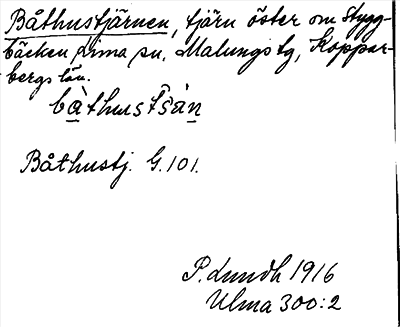 Båthustjärnen, tjärn öster om Stygg-
bäcken Lima sn, Malungs tg, Koppar-
bergs län.
bàthustšä̀n
Båthustj. G. 101.
P. Lundh 1916
Ulma 300:2